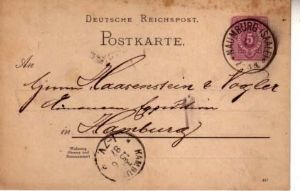 DEUTSCHE REICHSPOST.
POSTKARTE.
5
NAUMBURG (SAALE)
An
Herrn Haasenstein & Vogler
Annoncen Expedition
in Hamburg
Wohnung
HAMBURG